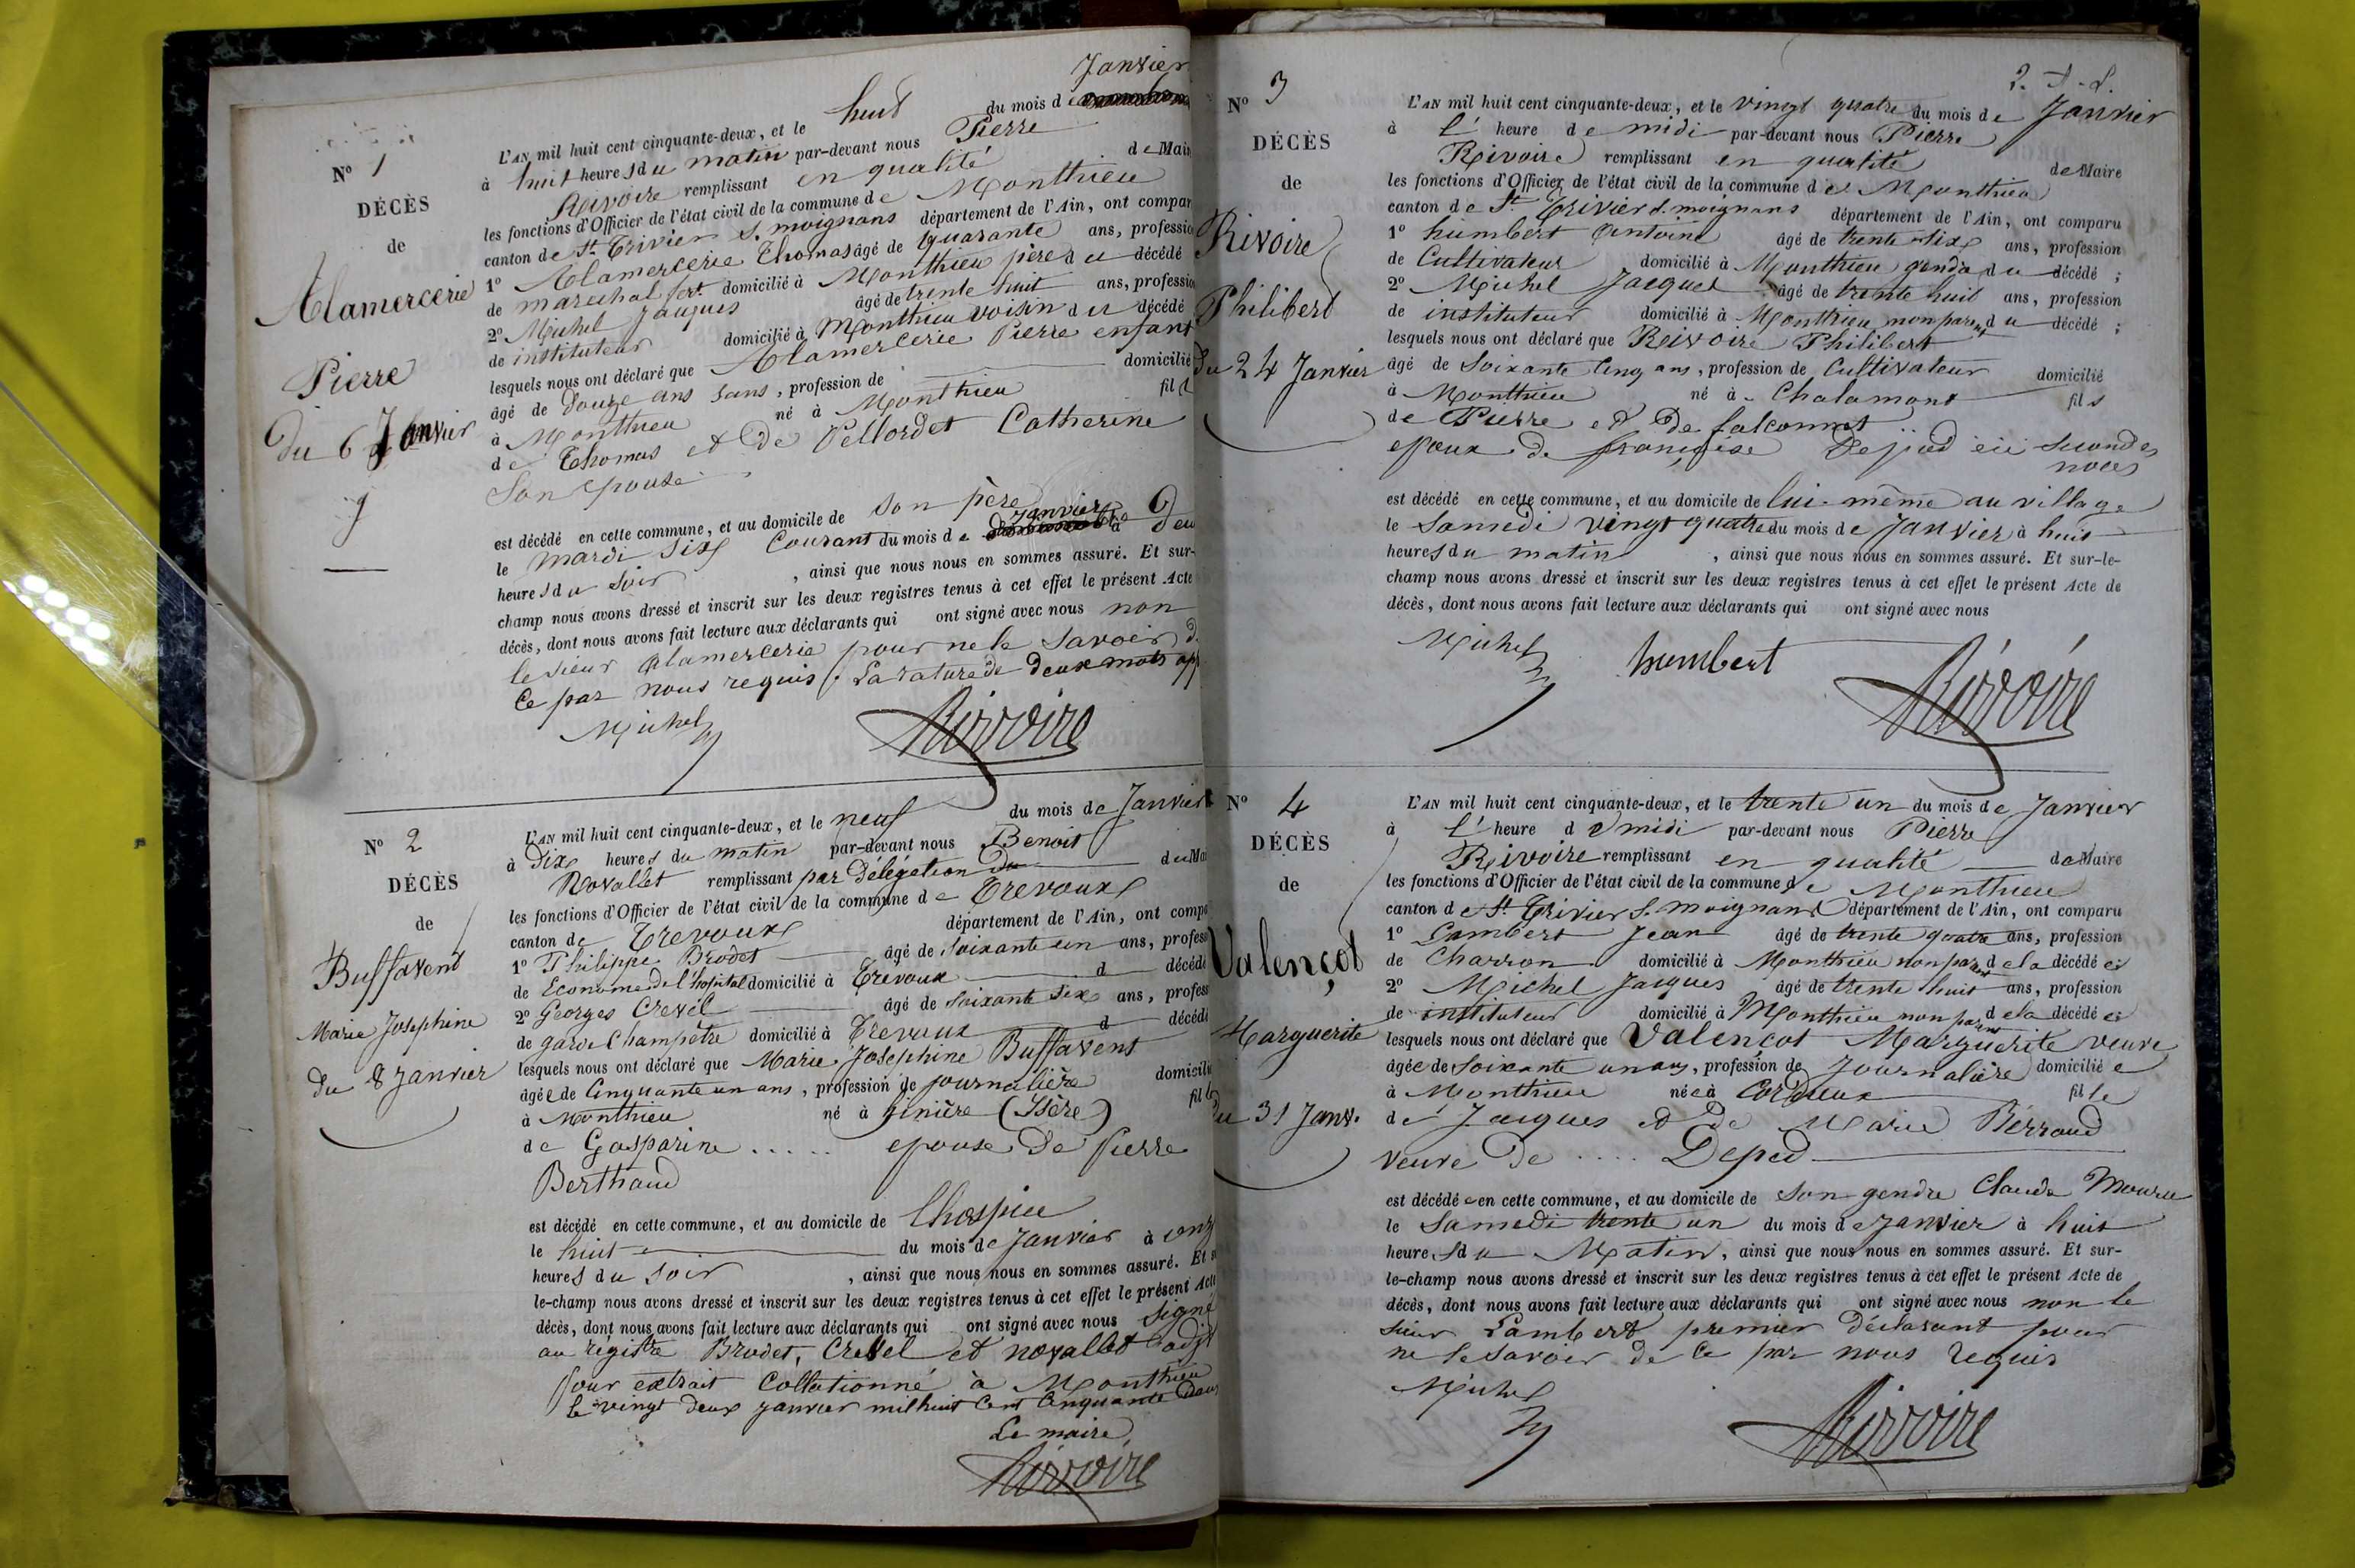 Janvier
L'AN mil huit cent cinquante-deux, et le huit du mois d
N° 1
à huit heures du matin par-devant nous Pierre
DÉCÈS
Rivoire remplissant en qualité de Mair
de
les fonctions d'Officier de l'état civil de la commune de Monthieu
canton de St Trivier s. moignans département de l'Ain, ont compar
Alamercerie
1° Alamercerie Thomas âgé de quarante ans, professio
de marechal fert domicilié à Monthieu père du décédé
2° Michel Jacques âgé de trente huit ans, professio
de instituteur domicilié à Monthieu voisin du décédé
Pierre
lesquels nous ont déclaré que Alamercerie Pierre enfant
âgé de douze ans sans, profession de domicilié
Du 6 Janvier
à Monthieu né à Monthieu fil
de Thomas et de Pellordet Catherine
Son épouse
est décédé en cette commune, et au domicile de son père
janvier
le mardi six Courant du mois de à
heures du soir, ainsi que nous nous en sommes assuré. Et sur-
champ nous avons dressé et inscrit sur les deux registres tenus à cet effet le présent Acte
décès, dont nous avons fait lecture aux déclarants qui ont signé avec nous non
le sieur Alamercerie pour ne le savoir d
Ce par nous requis. La rature de deux mots app
Michel Rivoire
L'AN mil huit cent cinquante-deux, et le neuf du mois de Janvier
N° 2
à Dix heures du matin par-devant nous Benoit
DÉCÈS
Novallet remplissant par Délégation du Mai
de
les fonctions d'Officier de l'état civil de la commune de Trevoux
canton de Trevoux département de l'Ain, ont compa
Buffavent
1° Philippe Brodet âgé de soixante un ans, profess
de Econome de l'hopital domicilié à Trévoux d décédé
2° Georges Crevel âgé de soixante six ans, profess
Marie Josephine
de garde Champêtre domicilié à Trevoux d décédé
lesquels nous ont déclaré que Marie Josephine Buffavent
Du 8 Janvier
âgée de Cinquante un ans, profession de journalière domicili
à Monthieu né à (Isère) fille
de Gasparine ..... epouse De Pierre
Berthaud
est décédé en cette commune, et au domicile de l'hospice
le huit du mois de Janvier à onz
heures du soir, ainsi que nous nous en sommes assuré. Et s
le-champ nous avons dressé et inscrit sur les deux registres tenus à cet effet le présent Acte
décès, dont nous avons fait lecture aux déclarants qui ont signé avec nous signé
au régistre Brodet, Crevel et novallet adjt
pour extrait Collationné à Monthieu
le vingt deux janvier mil huit Cent Cinquante Deux
Le maire,
Rivoire
N° 3
L'AN mil huit cent cinquante-deux, et le vingt quatre du mois de Janvier
à l' heure de midi par-devant nous Pierre
DÉCÈS
Rivoire remplissant en qualité de Maire
de
les fonctions d'Officier de l'état civil de la commune de Monthieu
canton de St Trivier s. moignans département de l'Ain, ont comparu
Rivoire
1° humbert Antoine âgé de trente six ans, profession
de Cultivateur domicilié à Monthieu gendre du décédé ;
2° Michel Jacques âgé de trente huit ans, profession
Philibert
de instituteur domicilié à Monthieu non parent du décédé ;
lesquels nous ont déclaré que Rivoire Philibert
Du 24 Janvier
âgé de soixante Cinq ans, profession de Cultivateur domicilié
à Monthieu né à Chalamont fils
de Pierre et De falconnet
epoux de françoise en secondes
noces
est décédé en cette commune, et au domicile de lui-même au village
le samedi vingt quatre du mois de Janvier à huit
heures du matin, ainsi que nous nous en sommes assuré. Et sur-le-
champ nous avons dressé et inscrit sur les deux registres tenus à cet effet le présent Acte de
décès, dont nous avons fait lecture aux déclarants qui ont signé avec nous
Michel humbert Rivoire
N° 4
L'AN mil huit cent cinquante-deux, et le trente un du mois de Janvier
à l' heure de midi par-devant nous Pierre
DÉCÈS
Rivoire remplissant en qualité de Maire
de
les fonctions d'Officier de l'état civil de la commune de Monthieu
canton de St Trivier s. moignans département de l'Ain, ont comparu
Valençot
1° Lambert Jean âgé de trente quatre ans, profession
de Charron domicilié à Monthieu non parent de la décédée
2° Michel Jacques âgé de trente huit ans, profession
Marguerite
de instituteur domicilié à Monthieu non parent de la décédée
lesquels nous ont déclaré que Valençot Marguerite veuve
âgée de soixante un ans, profession de Journalière domiciliée
Du 31 Janv.
à Monthieu née à Cordieux fille
de Jacques et de Marie Berraud
veuve De .... Deped
est décédée en cette commune, et au domicile de son gendre Claude
le samedi trente un du mois de janvier à huit
heures du Matin, ainsi que nous nous en sommes assuré. Et sur-
le-champ nous avons dressé et inscrit sur les deux registres tenus à cet effet le présent Acte de
décès, dont nous avons fait lecture aux déclarants qui ont signé avec nous non le
sieur Lambert premier déclarant pour
ne le savoir de ce par nous requis
Michel Rivoire